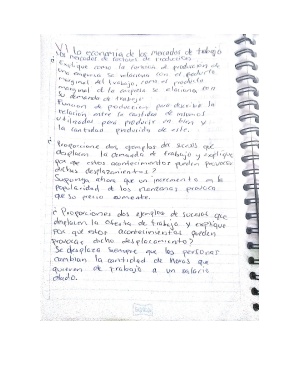 VI La economia de los mercados de trabajo
los mercados de factores de produccion
¿ Explique como la funcion de produccion de
una empresa se relaciona con el producto
marginal del trabajo, como el producto
marginal de la empresa se relaciona con
su demanda de trabajo
Funcion de produccion para describir la
relacion entre la cantidad de
utilizadas para producir un bien y
la cantidad producida de este.
¿ Proporcione dos ejemplos de sucesos que
desplacen la demanda de trabajo y explique
por que estos acontecimientos pueden provocar
dichos desplazamientos?
Suponga ahora que un incremento en la
popularidad de las manzanas provoca
que su precio aumente.
¿ Proporciones dos ejemplos de sucesos que
desplacen la oferta de trabajo y explique
Por que estos acontecimientos pueden
provocar dicho desplazamiento?
Se desplaza siempre que las personas
cambian la cantidad de horas que
quieren de trabajo a un salario
dado.